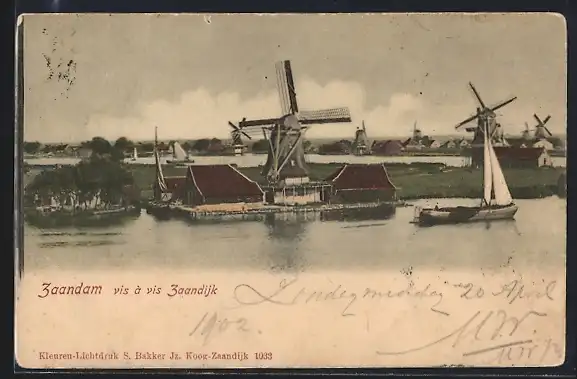 Zaandam vis à vis Zaandijk
Zondagmiddag 20 April
1902.
Kleuren-Lichtdruk S. Bakker Jz. Koog-Zaandijk 1033